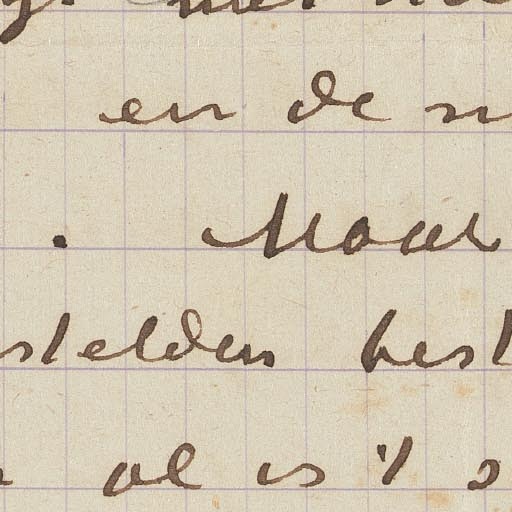 en de
. Maar
stelden best
al is 't s